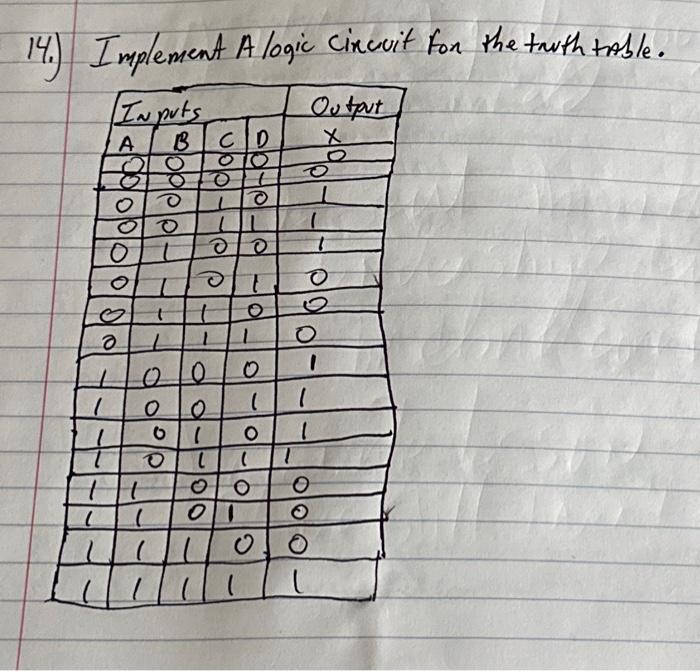 14.) Implement A logic circuit for the truth table.
Inputs Output
A B C D X
0 0 0 0 0
0 0 0 1 0
0 0 1 0 1
0 0 1 1 1
0 1 0 0 1
0 1 0 1 0
0 1 1 0 0
0 1 1 1 0
1 0 0 0 1
1 0 0 1 1
1 0 1 0 1
1 0 1 1 1
1 1 0 0 0
1 1 0 1 0
1 1 1 0 0
1 1 1 1 1